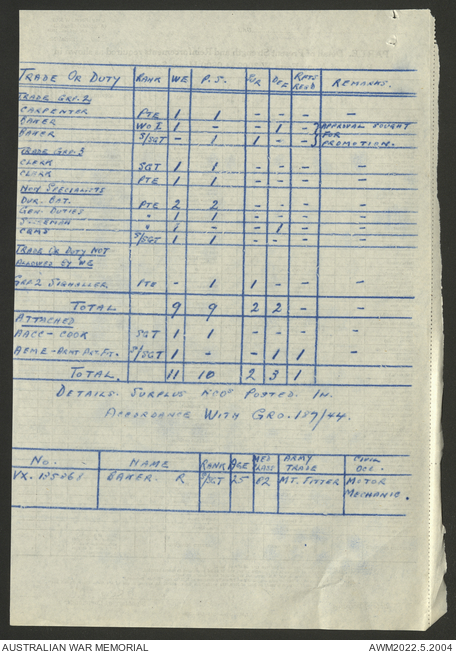 TRADE OR DUTY RANK WE P.S. SUR DEF RFTS REQD REMARKS.
TRADE GRP. 2
CARPENTER PTE 1 1 - - - -
BAKER WO I 1 - - 1 - APPROVAL SOUGHT
BAKER S/SGT - 1 1 - - FOR PROMOTION.
TRADE GRP. 3
CLERK SGT 1 1 - - - -
CLERK PTE 1 1 - - - -
NON SPECIALISTS
DVR. BAT. PTE 2 2 - - - -
GEN. DUTIES " 1 1 - - - -
" 1 - - 1 - -
CQMS S/SGT 1 1 - - - -
TRADE OR DUTY NOT
ALLOWED BY WE
GRP. 2 SIGNALLER PTE - 1 1 - - -
TOTAL 9 9 2 2 - -
ATTACHED
AACC - COOK SGT 1 1 - - - -
AEME - S/SGT 1 - - 1 1 -
TOTAL. 11 10 2 3 1
DETAILS SURPLUS POSTED IN.
ACCORDANCE WITH GRO. 157/44.
No. NAME RANK AGE MED CLASS ARMY TRADE CIVIL OCC.
BAKER. R S/SGT 25 MT. FITTER MOTOR
MECHANIC.
AUSTRALIAN WAR MEMORIAL AWM2022.5.2004